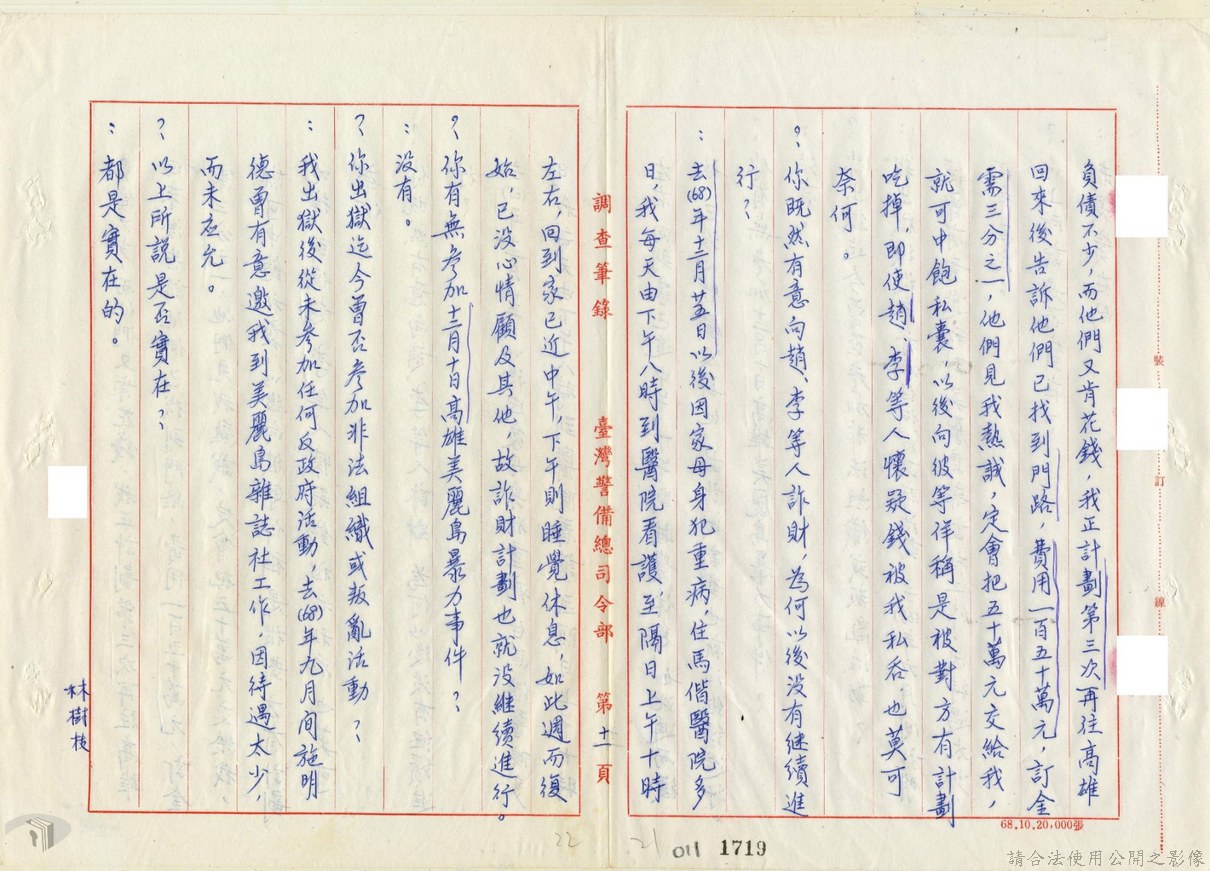 負債不少，而他們又肯花錢，我正計劃第三次再往高雄
回來後告訴他們已找到門路，費用一百五十萬元，訂金
需三分之一，他們見我熱誠，定會把五十萬元交給我，
就可中飽私囊，以後向彼等佯稱是被對方有計劃
吃掉，即使趙、李等人懷疑錢被我私吞也莫可
奈何。
？：你既然有意向趙、李等人詐財，為何以後沒有继續進
行？
：去(68)年十二月廿五日以後因家母身犯重病，住馬偕醫院多
日，我每天由下午八時到醫院看護至隔日上午十時
調查筆錄 臺灣警備總司令部 第十一頁
左右，回到家已近中午，下午則睡覺休息，如此週而復
始，已沒心情顧及其他，故詐財計劃也就沒継續進行。
？：你有無參加十二月十日高雄美麗島暴力事件？
：沒有。
？：你出獄迄今曾否參加非法組織或叛亂活動？
：我出獄後從未參加任何反政府活動，去(68)年九月間施明
德曾有意邀我到美麗島雜誌社工作，因待遇太少，
而未应允。
？：以上所說是否實在？
：都是實在的。
林樹枝
裝
訂
線
68.10.20,000張
22
21
011 1719
請合法使用公開之影像